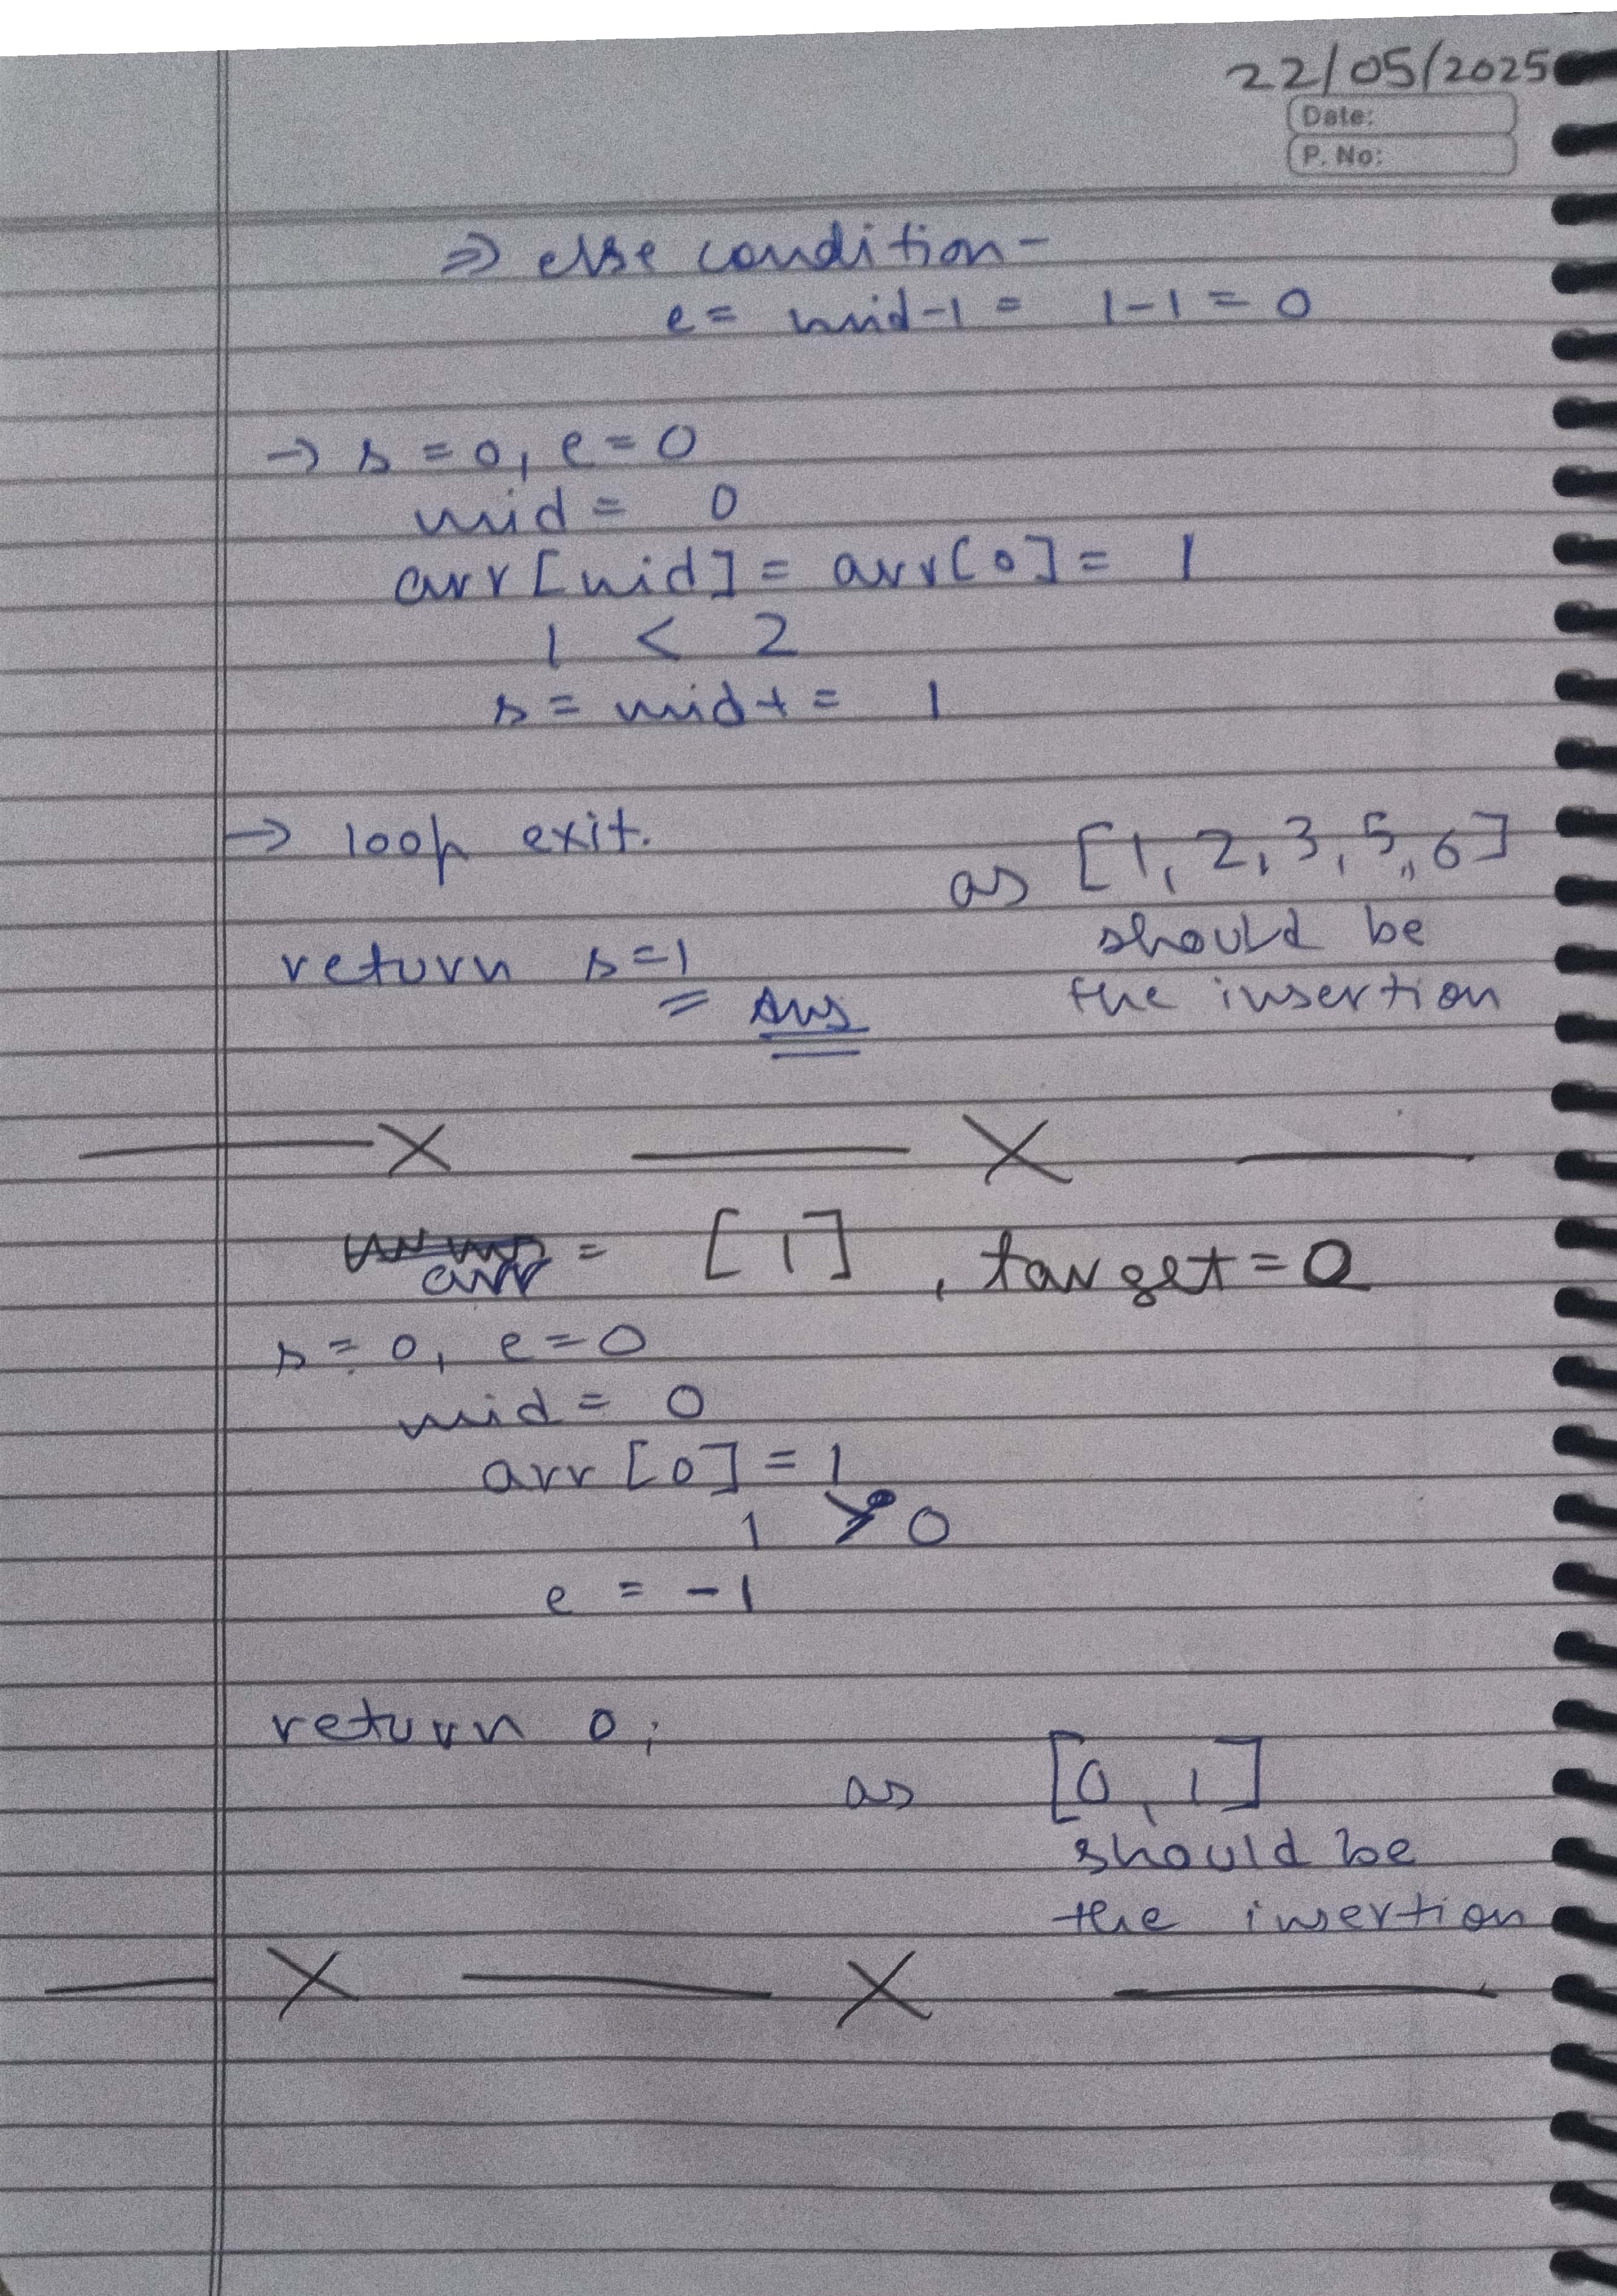 22/05/2025
Date:
P. No:
⇒ else condition -
e = mid-1 = 1-1 = 0
→ s = 0, e = 0
mid = 0
arr[mid] = arr[0] = 1
1 < 2
s = mid+ = 1
→ loop exit.
as [1, 2, 3, 5,, 6]
should be
the insertion
return s=1
Ans
arr = [1], target = 0
s = 0, e = 0
mid = 0
arr[0] = 1
1 > 0
e = -1
return 0;
as [0, 1]
should be
the insertion